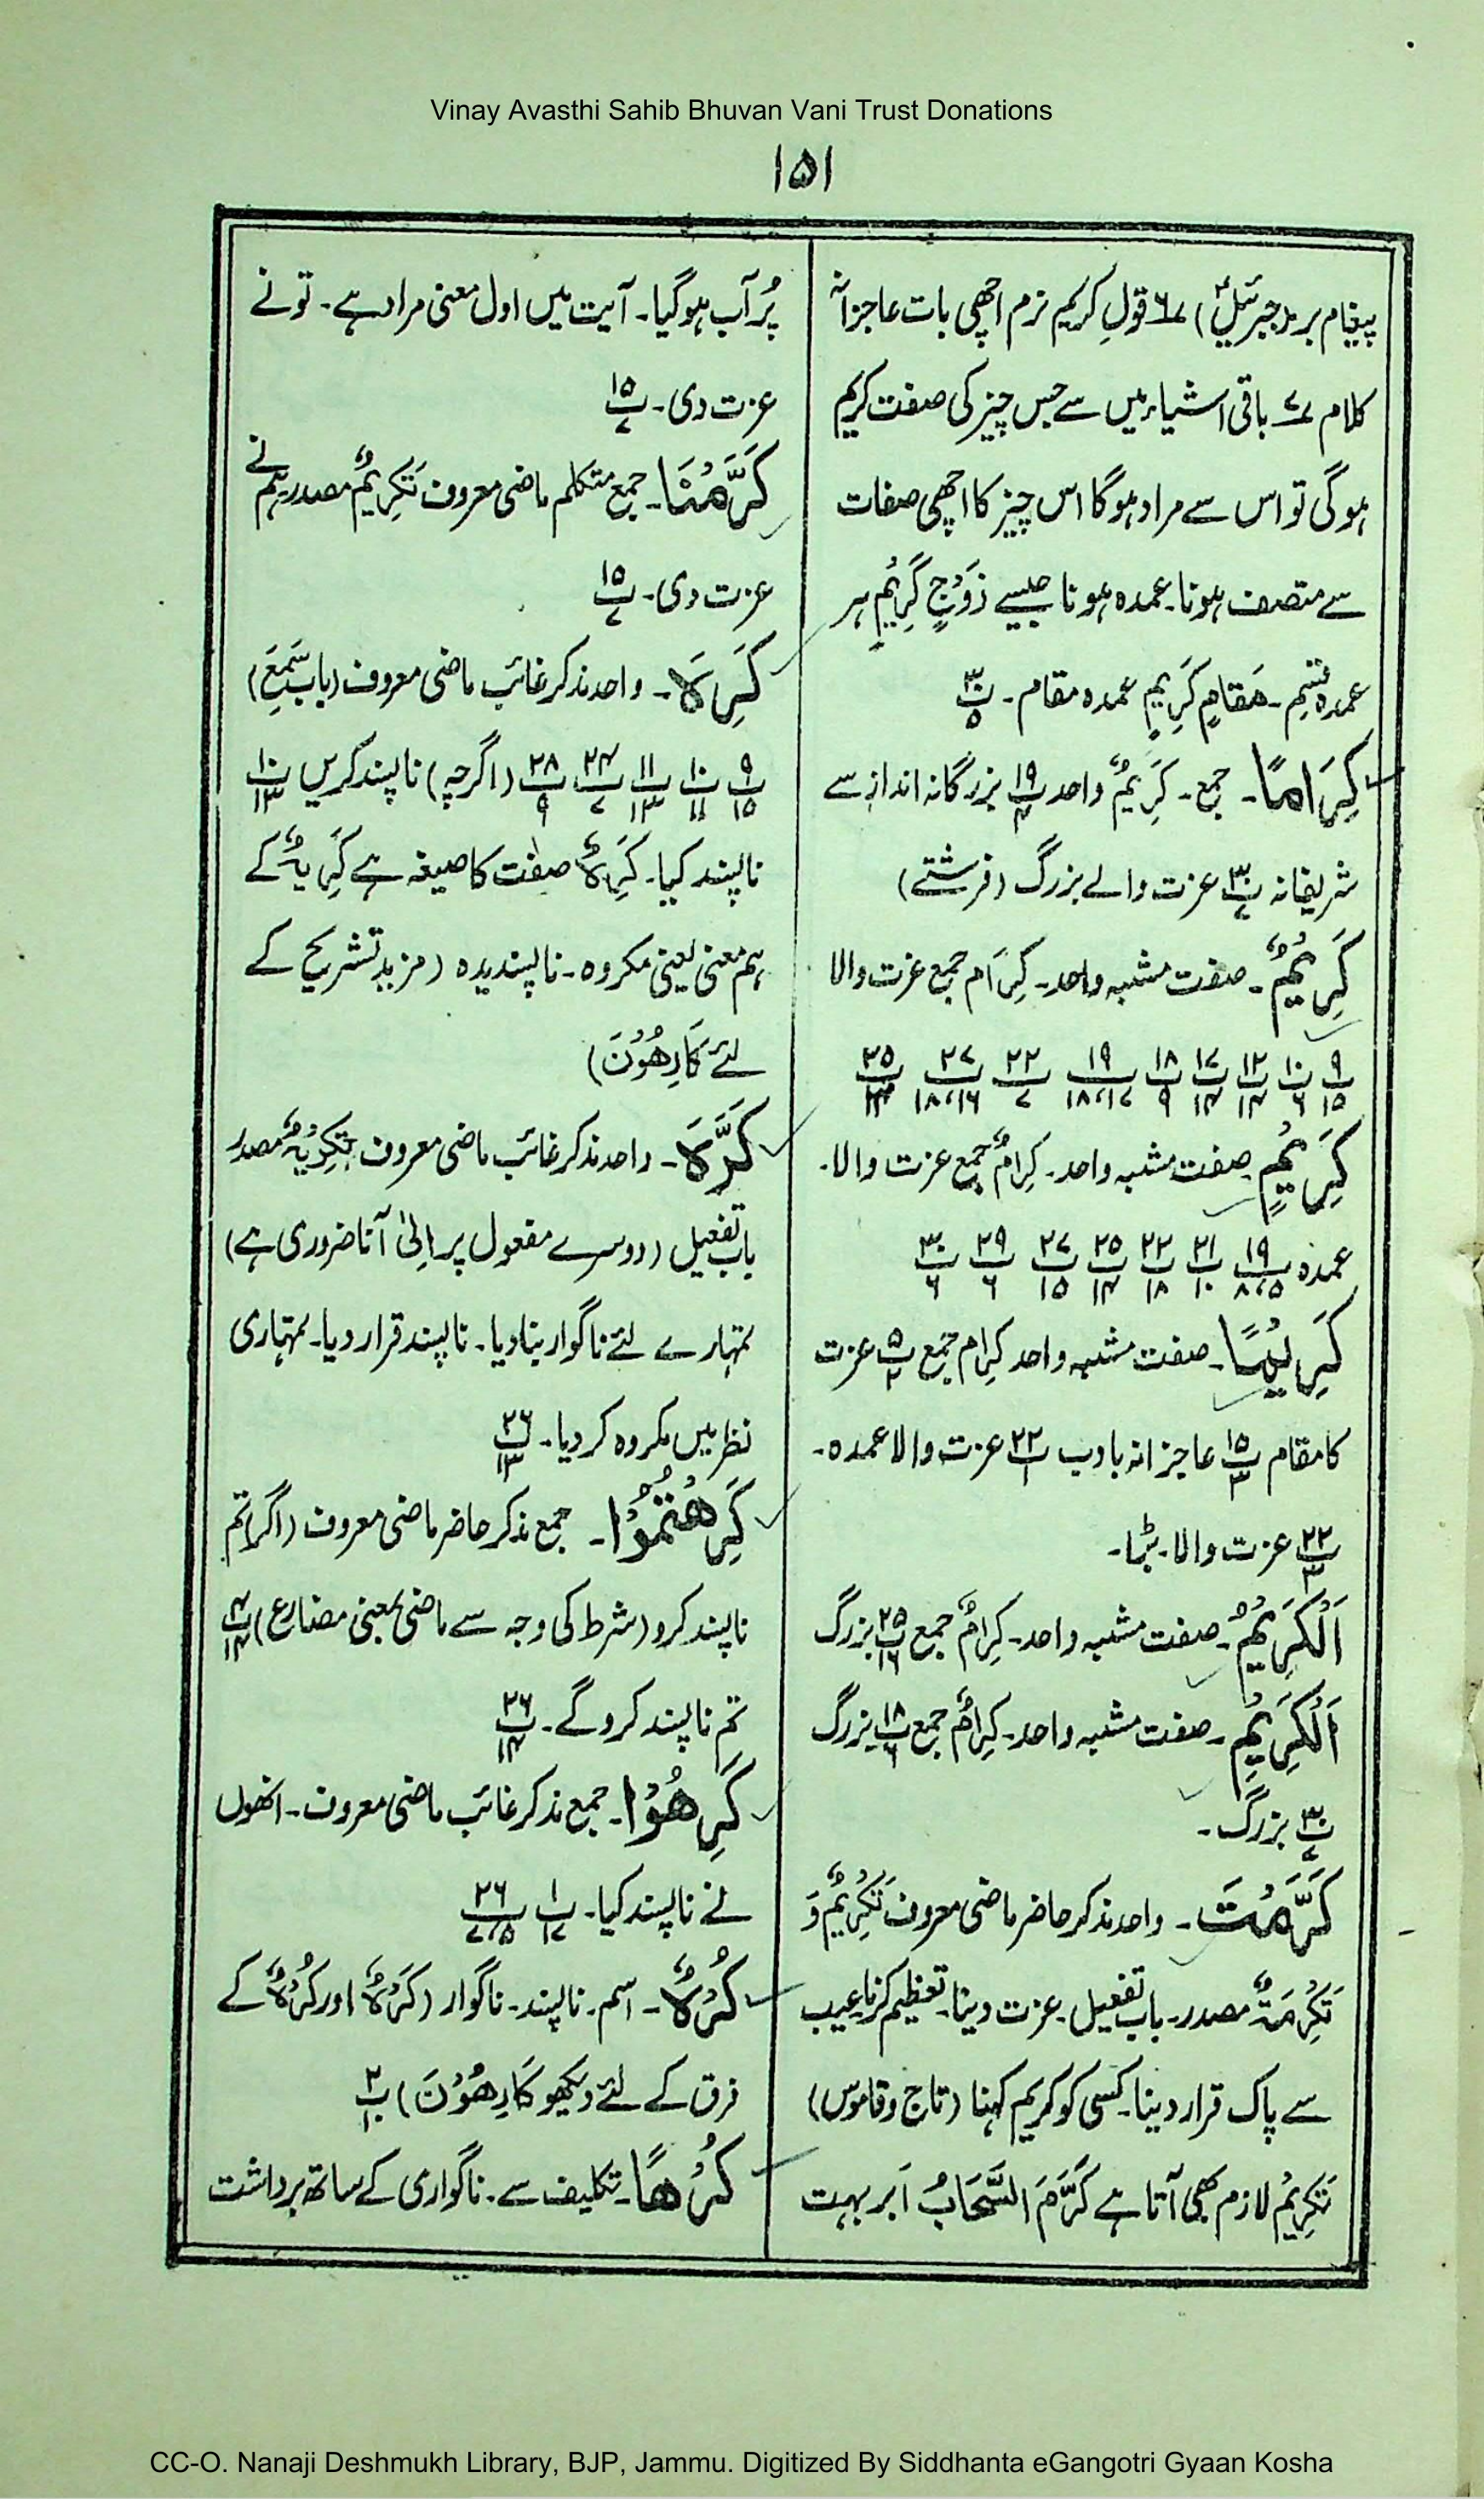 Vinay Avasthi Sahib Bhuvan Vani Trust Donations
۱۵۱
پیغام بر (جبرئیل) ۶ قولِ کریم نرم اچھی بات عاجزانہ
کلام ۷ باقی اشیاء میں سے جس چیز کی صفت کریم
ہوگی تو اس سے مراد ہوگا اس چیز کا اچھی صفات
سے متصف ہونا۔ عمدہ ہونا جیسے زَوْجٍ كَرِيْمٍ ہر
عمدہ قسم۔ مَقَامٍ كَرِيْمٍ عمدہ مقام۔ پ
كِرَامًا۔ جمع۔ كَرِيْمٌ واحد پ ۱۹ بزرگانہ انداز سے
شریفانہ پ ۳۰ عزت والے بزرگ (فرشتے)
كَرِيْمٌ۔ صفت مشبہ واحد۔ كِرَام جمع عزت والا
۹/۱۵ ۱۰/۶ ۱۲/۱۴ ۱۷/۱۴ ۱۸/۹ ۱۹/۱۸،۱۷ ۲۲/۷ ۲۷/۱۸،۱۶ ۲۵
كَرِيْمٍ۔ صفت مشبہ واحد۔ كِرَامٌ جمع عزت والا۔
عمدہ ۱۹/۸،۵ ۲۱/۱۰ ۲۲/۱۸ ۲۵/۱۴ ۲۷/۱۵ ۲۹/۶ ۳۰/۶
كَرِيْمًا۔ صفت مشبہ واحد كِرَام جمع پ ۵/۲ عزت
کا مقام پ ۱۵/۳ عاجزانہ باادب پ ۲۲/۱ عزت والا عمدہ۔
پ ۲۲/۳ عزت والا۔ بڑا۔
اَلْكَرِيْمُ۔ صفت مشبہ واحد۔ كِرَامٌ جمع پ ۲۵/۱۶ بزرگ
اَلْكَرِيْمِ۔ صفت مشبہ واحد۔ كِرَامٌ جمع پ ۱۸/۶ بزرگ
پ ۳۰/۷ بزرگ۔
كَرَّمْتَ۔ واحد مذکر حاضر ماضی معروف تَكْرِيْمٌ وَ
تَكْرِمَةٌ مصدر۔ باب تفعیل۔ عزت دینا۔ تعظیم کرنا عیب
سے پاک قرار دینا۔ کسی کو کریم کہنا (تاج و قاموس)
تَكْرِيْمٌ لازم بھی آتا ہے كَرَّمَ السَّحَابُ ابر بہت
پُر آب ہوگیا۔ آیت میں اول معنی مراد ہے۔ تو نے
عزت دی۔ پ ۱۵/۷
كَرَّمْنَا۔ جمع متکلم ماضی معروف تَكْرِيْمٌ مصدر ہم نے
عزت دی۔ پ ۱۵/۷
كَرِهَ۔ واحد مذکر غائب ماضی معروف (باب سَمِعَ)
۹/۱۵ ۱۰/۱۱ ۱۱/۱۳ ۲۴/۷ ۲۸/۹ (اگرچہ) ناپسند کریں ۱۰/۱۳
ناپسند کیا۔ كَرِهٌ صفت کا صیغہ ہے كَرِيْهٌ کے
ہم معنی یعنی مکروہ۔ ناپسندیدہ (مزید تشریح کے
لئے كَارِهُوْنَ)
كَرَّهَ۔ واحد مذکر غائب ماضی معروف تَكْرِيْهٌ مصدر
باب تفعیل (دوسرے مفعول پر اِلیٰ آنا ضروری ہے)
تمہارے لئے ناگوار بنا دیا۔ ناپسند قرار دیا۔ تمہاری
نظر میں مکروہ کر دیا۔ پ ۲۶/۱۳
كَرِهْتُمُوْا۔ جمع مذکر حاضر ماضی معروف (اگر) تم
ناپسند کرو (شرط کی وجہ سے ماضی بمعنی مضارع) پ ۴/۱۴
تم ناپسند کرو گے۔ پ ۲۶/۱۴
كَرِهُوْا۔ جمع مذکر غائب ماضی معروف۔ انھوں
نے ناپسند کیا۔ پ ۱۰/۱۷ پ ۲۶/۷،۵
كُرْهٌ۔ اسم۔ ناپسند۔ ناگوار (كَرْهٌ اور كُرْهٌ کے
فرق کے لئے دیکھو كَارِهُوْنَ) پ ۲/۱۰
كُرْهًا۔ تکلیف سے۔ ناگواری کے ساتھ برداشت
CC-O. Nanaji Deshmukh Library, BJP, Jammu. Digitized By Siddhanta eGangotri Gyaan Kosha